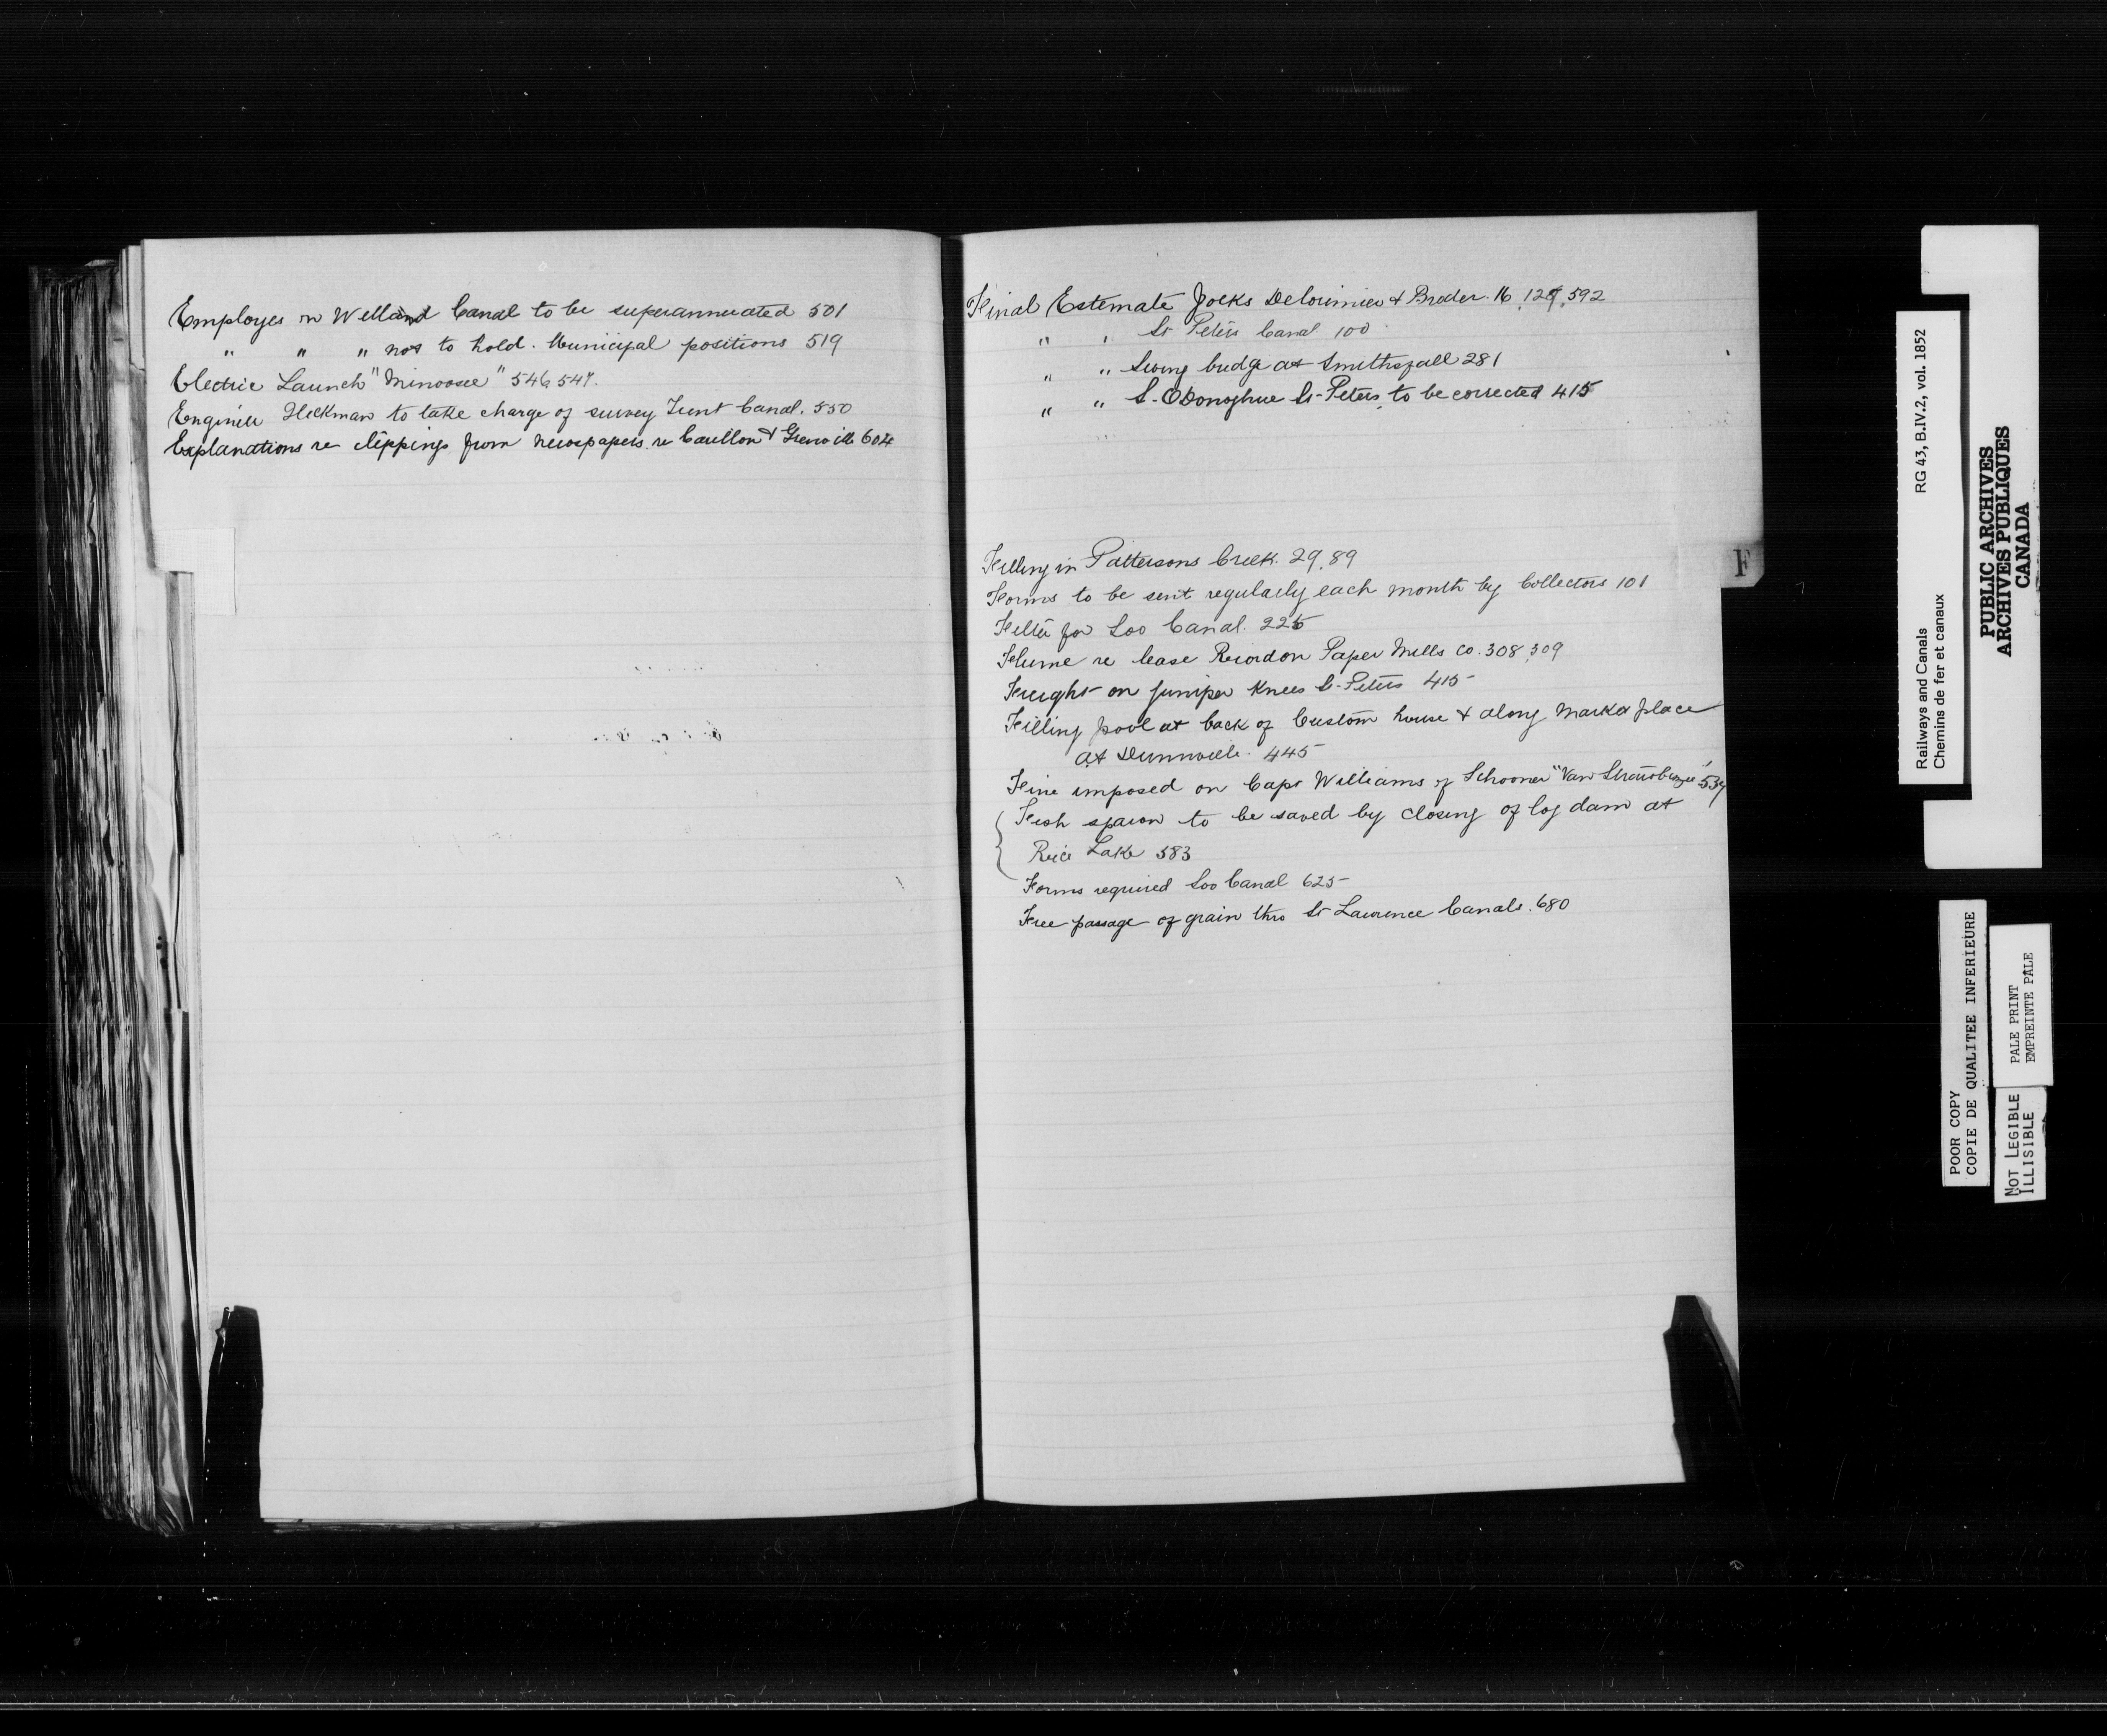 Employes on Welland Canal to be superannuated 501
" " " not to hold. Municipal positions 519
Electric Launch "Minoosee" 546 547.
Engineer Heckman to take charge of survey Trent Canal. 550
Explanations re clippings from newspapers. re Carillon & Grenville 604
Final Estemate Jocks Delorimier & Broder. 16, 127, 592
" " St Peters Canal 100
" " Swing bridge at Smithsfall 281
" " S. O'Donoghue St-Peters, to be corrected 415
F
Filling in Pattersons Creek. 29, 89
Forms to be sent regularly each month by Collectors 101
Filter for Soo Canal. 225
Flume re lease Riordon Paper Mills Co. 308, 309
Freight on juniper knees St-Peters 415
Filling pool at back of Custom house & along market place
at Dunnville. 445
Fine imposed on Capt Williams of Schooner "Van Straubenzee" 534
Fish spawn to be saved by closing of log dam at
Rice Lake 583
Forms required Soo Canal 625
Free passage of grain thro St Lawrence Canals. 680
Railways and Canals RG 43, B.IV.2, vol. 1852
Chemins de fer et canaux
PUBLIC ARCHIVES
ARCHIVES PUBLIQUES
CANADA
POOR COPY
COPIE DE QUALITEE INFERIEURE
PALE PRINT
EMPREINTE PÂLE
NOT LEGIBLE
ILLISIBLE